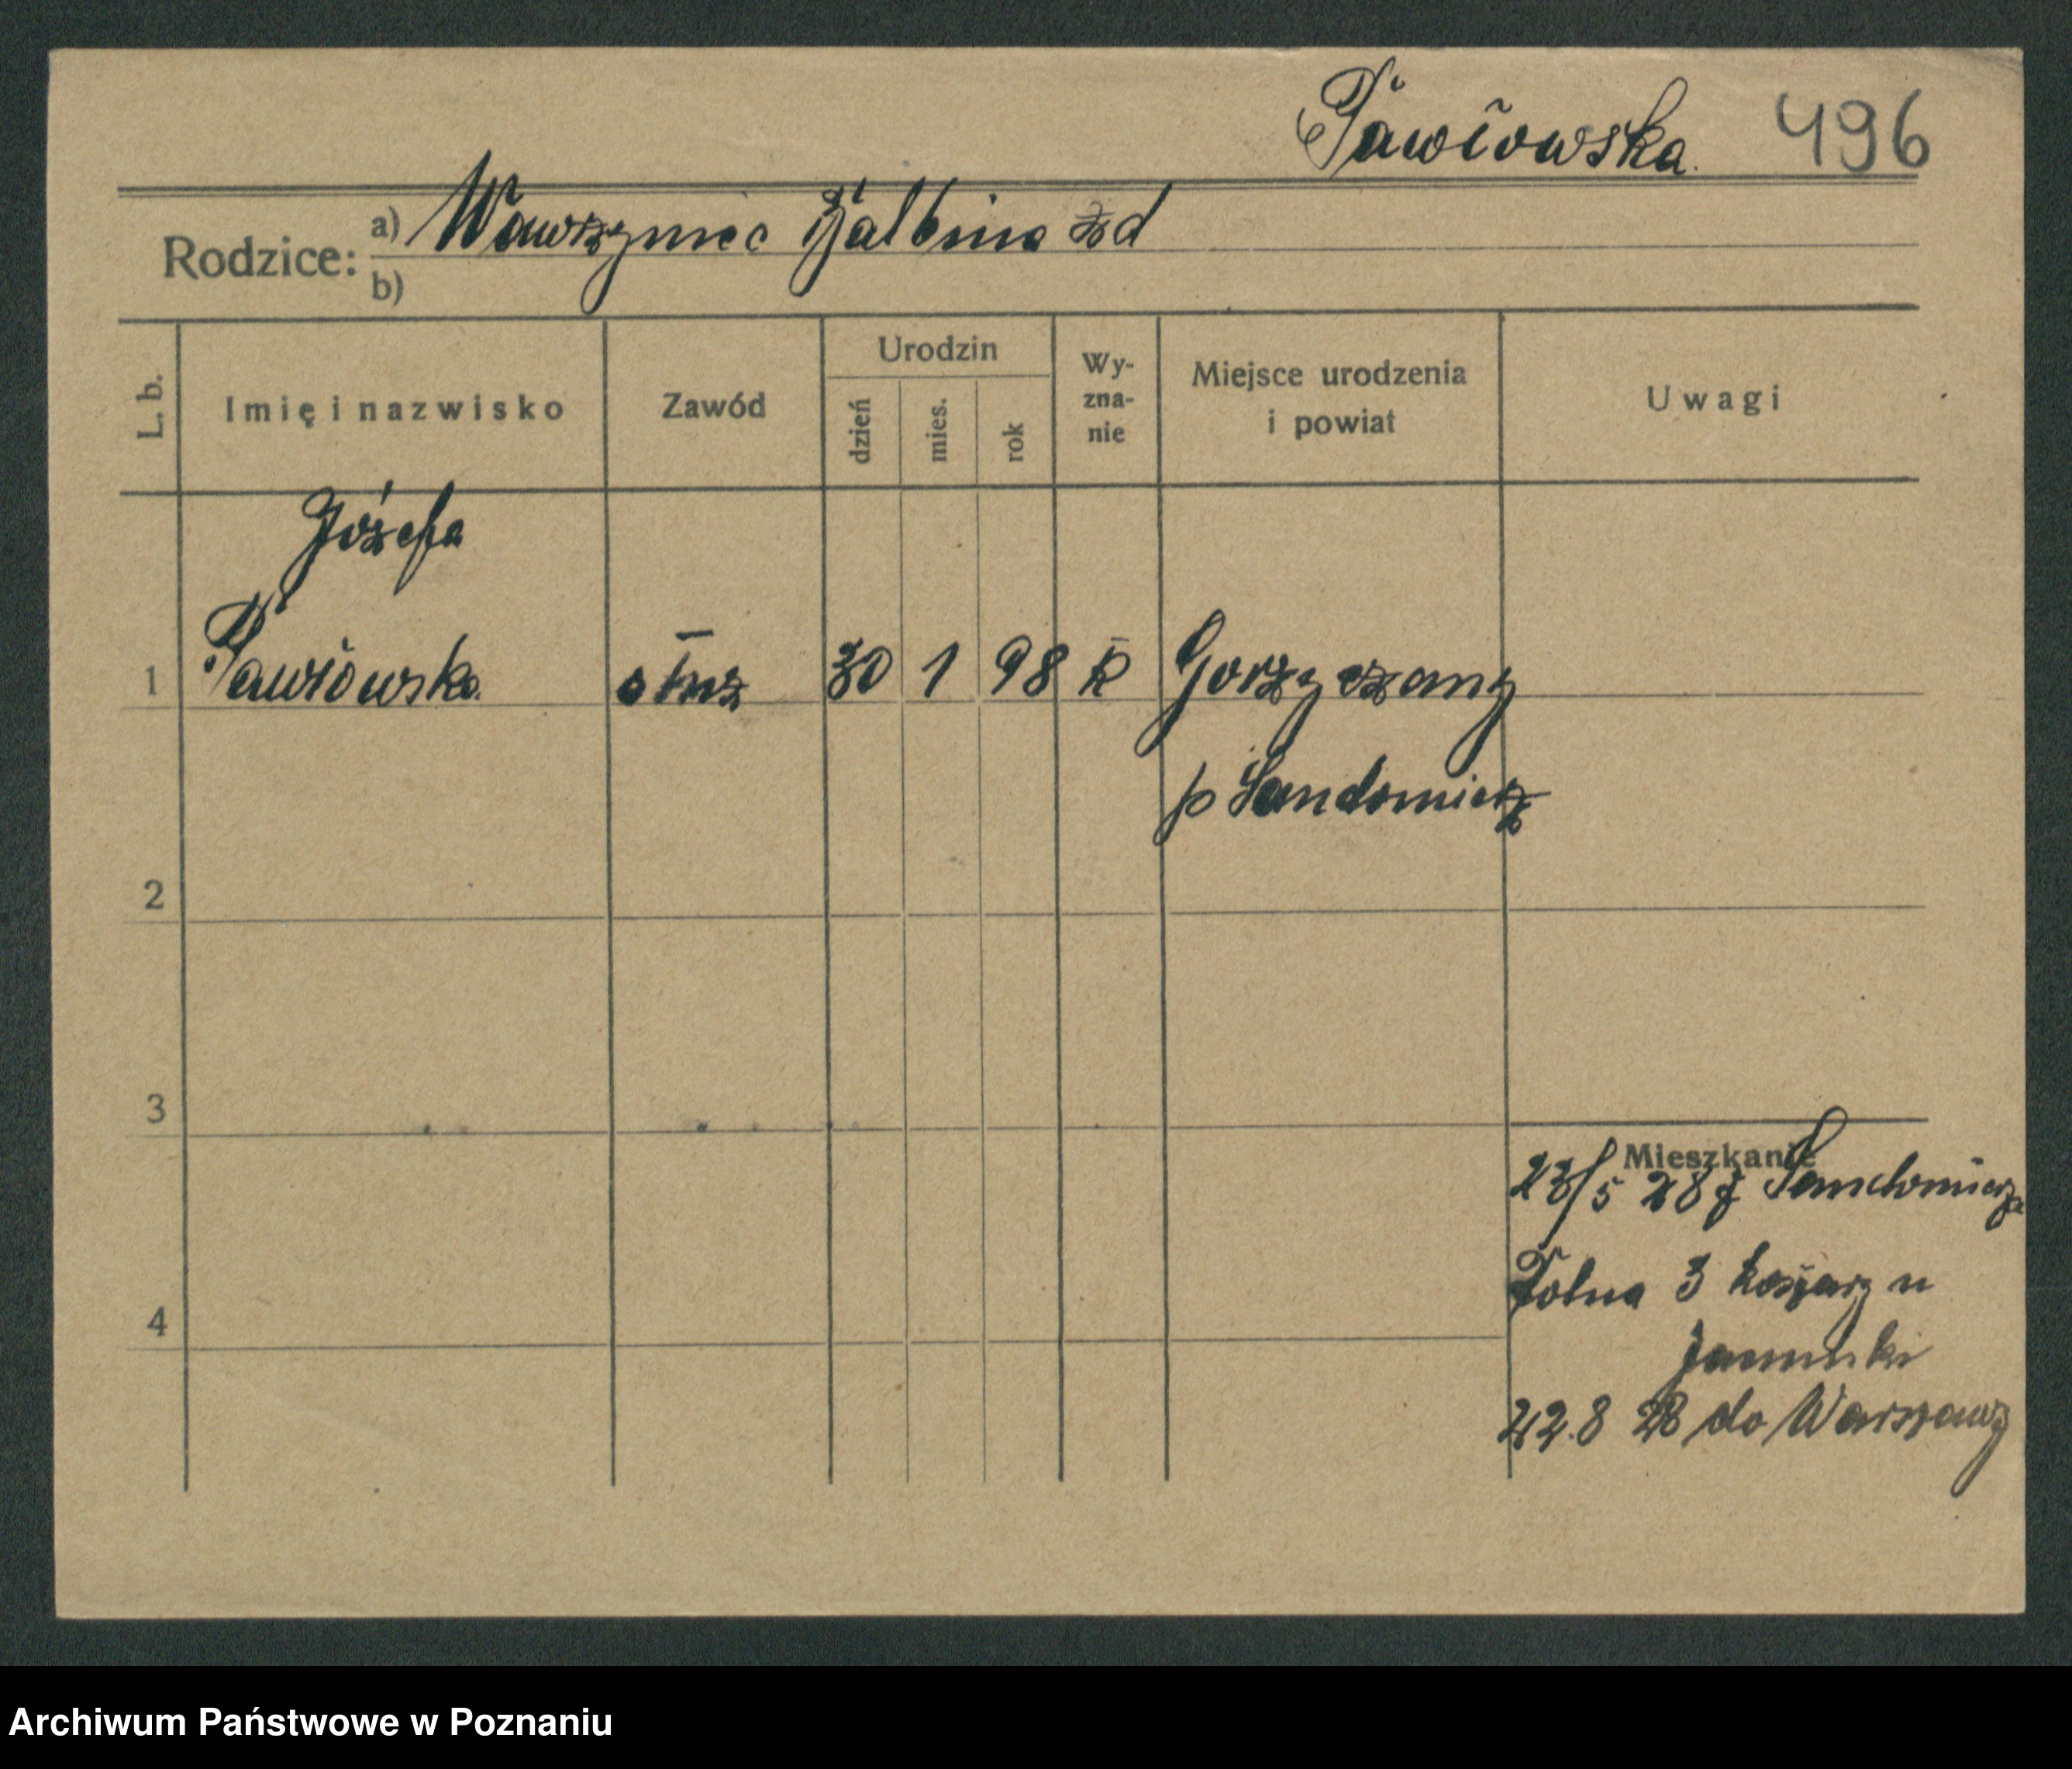 Pawłowska. 496
Rodzice: a) Wawrzyniec Balbina zd
b)
L. b. Imię i nazwisko Zawód Urodzin dzień mies. rok Wyznanie Miejsce urodzenia i powiat Uwagi
Józefa
1 Pawłowska służ 30 1 98 k Gorzyczany
p Sandomierz
2
3
Mieszkanie
23/5 28 z Sandomierza
Polna 3 koszary u
4
22.8 28 do Warszawy
Archiwum Państwowe w Poznaniu